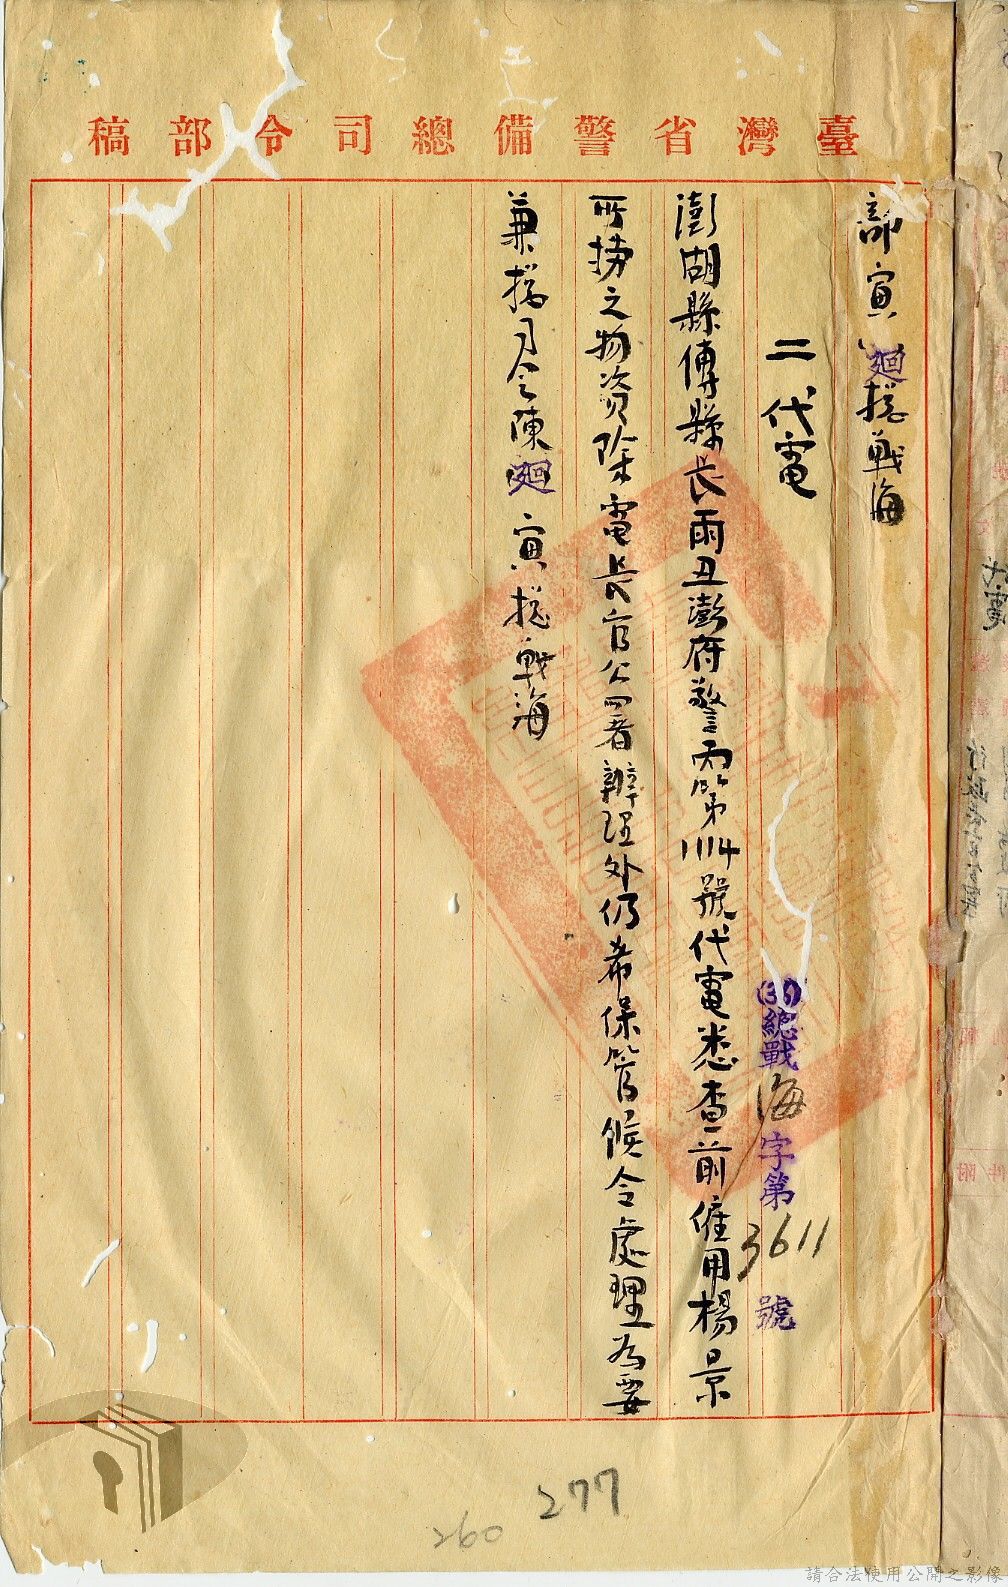 臺灣省警備總司令部稿
部寅廻總戰海
二代電
(36)總戰海字第3611號
澎湖縣傅縣長雨丑澎府警丙第1114號代電悉查前僱用楊景
所撈之物資除電長官公署辦理外仍希保管候令處理為要
兼總司令陳廻寅總戰海
277
260
請合法使用公開之影像